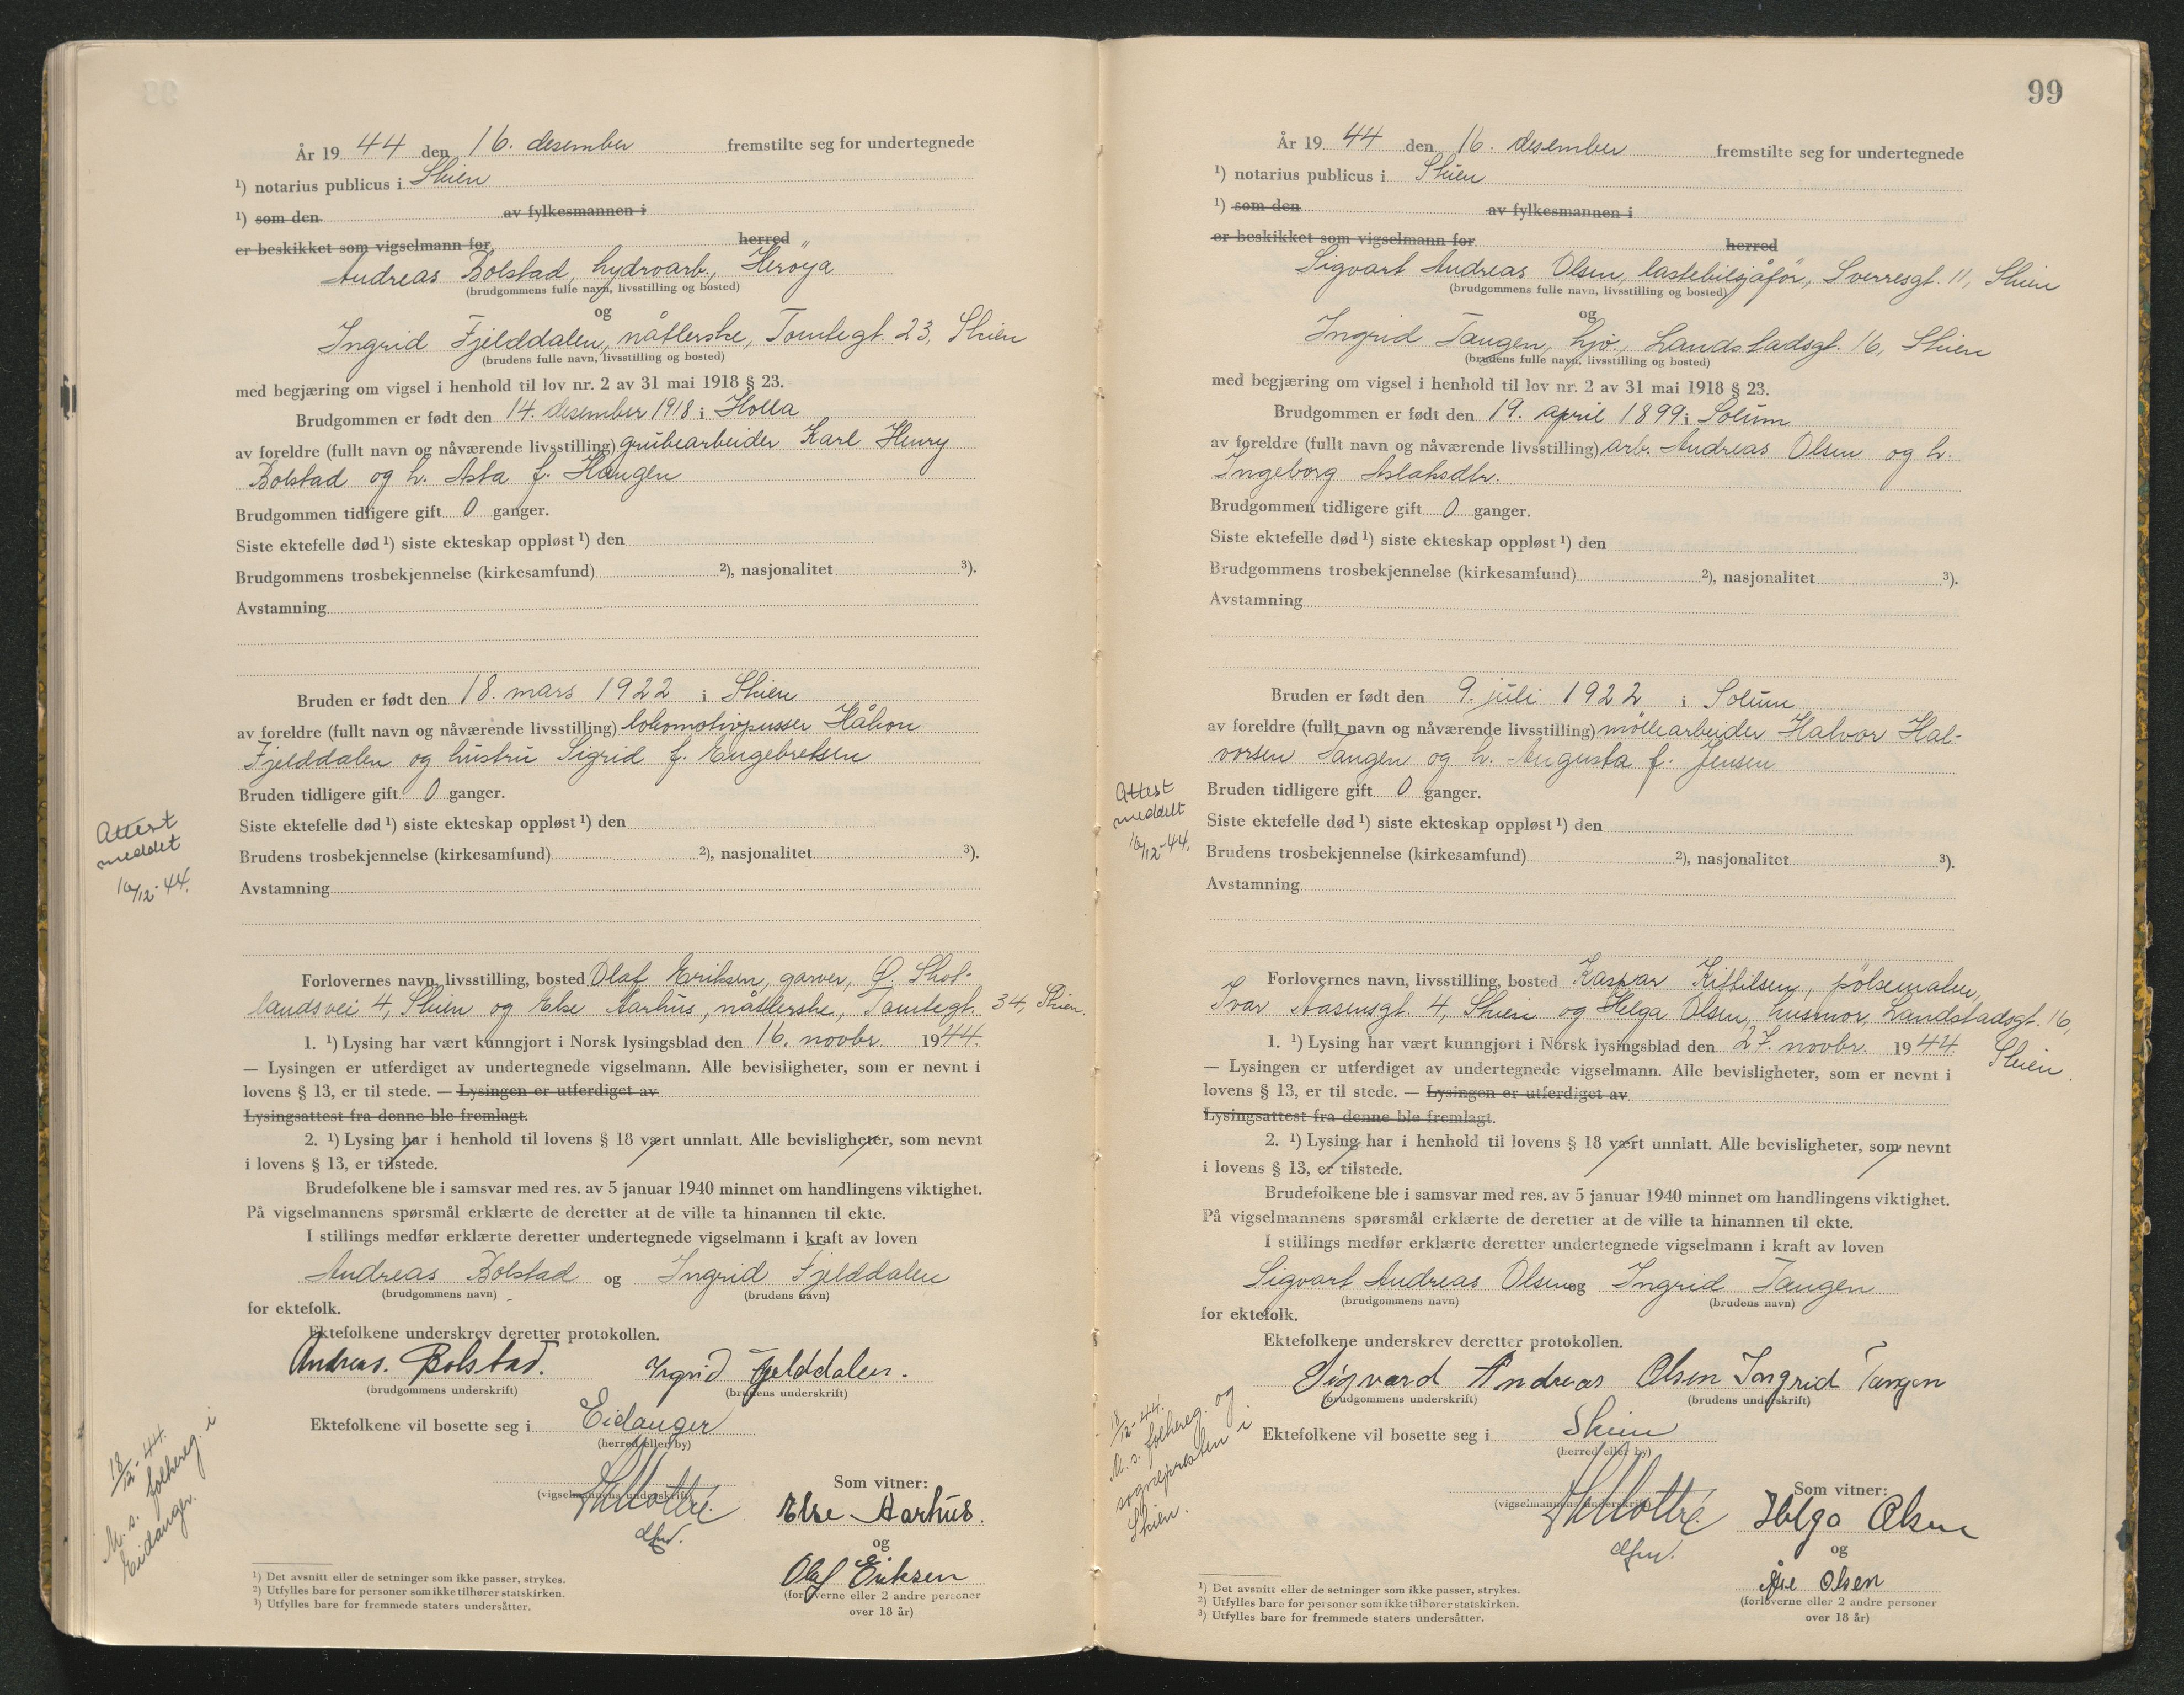 År 19 44 den 16. desember fremstilte seg for undertegnede
¹) notarius publicus i Skien
¹) som den av fylkesmannen i
er beskikket som vigselmann for herred
Andreas Bolstad, hydroarb., Herøya
(brudgommens fulle navn, livsstilling og bosted)
og
Ingrid Fjelddalen, nåtlerske, Tomtegt. 23, Skien
(brudens fulle navn, livsstilling og bosted)
med begjæring om vigsel i henhold til lov nr. 2 av 31 mai 1918 § 23.
Brudgommen er født den 14. desember 1918 i Holla
av foreldre (fullt navn og nåværende livsstilling) grubearbeider Karl Henry
Bolstad og h. Asta f. Haugen
Brudgommen tidligere gift 0 ganger.
Siste ektefelle død ¹) siste ekteskap oppløst ¹) den
Brudgommens trosbekjennelse (kirkesamfund) ²), nasjonalitet ³).
Avstamning
Bruden er født den 18. mars 1922 i Skien
av foreldre (fullt navn og nåværende livsstilling) lokomotivpusser Håkon
Fjelddalen og hustru Sigrid f. Engebretsen
Bruden tidligere gift 0 ganger.
Siste ektefelle død ¹) siste ekteskap oppløst ¹) den
Attest
meddelt
16/12-44.
Brudens trosbekjennelse (kirkesamfund) ²), nasjonalitet ³).
Avstamning
Forlovernes navn, livsstilling, bosted Olaf Eriksen, garver, Ø. Skot-
landsvei 4, Skien og Else Aarhus, nåtlerske, Tomtegt. 34, Skien.
1. ¹) Lysing har vært kunngjort i Norsk lysingsblad den 16. novbr 1944.
— Lysingen er utferdiget av undertegnede vigselmann. Alle bevisligheter, som er nevnt i
lovens § 13, er til stede. — Lysingen er utferdiget av
Lysingsattest fra denne ble fremlagt.
2. ¹) Lysing har i henhold til lovens § 18 vært unnlatt. Alle bevisligheter, som nevnt
i lovens § 13, er tilstede.
Brudefolkene ble i samsvar med res. av 5 januar 1940 minnet om handlingens viktighet.
På vigselmannens spørsmål erklærte de deretter at de ville ta hinannen til ekte.
I stillings medfør erklærte deretter undertegnede vigselmann i kraft av loven
Andreas Bolstad og Ingrid Fjelddalen
(brudgommens navn) (brudens navn)
for ektefolk.
Ektefolkene underskrev deretter protokollen.
Andreas. Bolstad. Ingrid Fjelddalen.
(brudgommens underskrift) (brudens underskrift)
Ektefolkene vil bosette seg i Eidanger
(herred eller by)
18/12-44.
M. s. folkereg. i
Eidanger.
Som vitner:
(vigselmannens underskrift)
Else Aarhus.
og
Olaf Eriksen
(forloverne eller 2 andre personer
over 18 år)
¹) Det avsnitt eller de setninger som ikke passer, strykes.
²) Utfylles bare for personer som ikke tilhører statskirken.
³) Utfylles bare for fremmede staters undersåtter.
99
År 19 44 den 16. desember fremstilte seg for undertegnede
¹) notarius publicus i Skien
¹) som den av fylkesmannen i
er beskikket som vigselmann for herred
Sigvart Andreas Olsen, lastebilsjåfør, Sverresgt. 11, Skien
(brudgommens fulle navn, livsstilling og bosted)
og
Ingrid Tangen, hjv., Landstadsgt. 16, Skien
(brudens fulle navn, livsstilling og bosted)
med begjæring om vigsel i henhold til lov nr. 2 av 31 mai 1918 § 23.
Brudgommen er født den 19. april 1899 i Solum
av foreldre (fullt navn og nåværende livsstilling) arb. Andreas Olsen og h.
Ingeborg Aslaksdtr.
Brudgommen tidligere gift 0 ganger.
Siste ektefelle død ¹) siste ekteskap oppløst ¹) den
Brudgommens trosbekjennelse (kirkesamfund) ²), nasjonalitet ³).
Avstamning
Bruden er født den 9. juli 1922 i Solum
av foreldre (fullt navn og nåværende livsstilling) møllearbeider Halvor Hal-
vorsen Tangen og h. Augusta f. Jensen
Bruden tidligere gift 0 ganger.
Attest
meddelt
16/12-44.
Siste ektefelle død ¹) siste ekteskap oppløst ¹) den
Brudens trosbekjennelse (kirkesamfund) ²), nasjonalitet ³).
Avstamning
Forlovernes navn, livsstilling, bosted Kaspar Kittilsen, pølsemaker,
Ivar Aasensgt. 4, Skien og Helga Olsen, husmor, Landstadsgt. 16,
Skien.
1. ¹) Lysing har vært kunngjort i Norsk lysingsblad den 27. novbr. 1944.
— Lysingen er utferdiget av undertegnede vigselmann. Alle bevisligheter, som er nevnt i
lovens § 13, er til stede. — Lysingen er utferdiget av
Lysingsattest fra denne ble fremlagt.
2. ¹) Lysing har i henhold til lovens § 18 vært unnlatt. Alle bevisligheter, som nevnt
i lovens § 13, er tilstede.
Brudefolkene ble i samsvar med res. av 5 januar 1940 minnet om handlingens viktighet.
På vigselmannens spørsmål erklærte de deretter at de ville ta hinannen til ekte.
I stillings medfør erklærte deretter undertegnede vigselmann i kraft av loven
Sigvart Andreas Olsen og Ingrid Tangen
(brudgommens navn) (brudens navn)
for ektefolk.
Ektefolkene underskrev deretter protokollen.
Sigvard Andreas Olsen Ingrid Tangen
(brudgommens underskrift) (brudens underskrift)
Ektefolkene vil bosette seg i Skien
(herred eller by)
18/12-44.
M. s. folkereg. og
sognepresten i
Skien.
Som vitner:
(vigselmannens underskrift)
Helga Olsen
og
Åse Olsen
(forloverne eller 2 andre personer
over 18 år)
¹) Det avsnitt eller de setninger som ikke passer, strykes.
²) Utfylles bare for personer som ikke tilhører statskirken.
³) Utfylles bare for fremmede staters undersåtter.